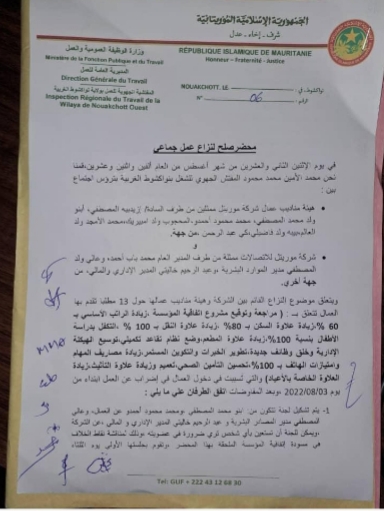 الجمهورية الإسلامية الموريتانية
شرف - إخاء - عدل
RÉPUBLIQUE ISLAMIQUE DE MAURITANIE
Honneur - Fraternité - Justice
وزارة الوظيفة العمومية والعمل
Ministère de la Fonction Publique et du Travail
المديرية العامة للعمل
Direction Générale du Travail
المفتشية الجهوية للعمل بولاية نواكشوط الغربية
Inspection Régionale du Travail de la
Wilaya de Nouakchott Ouest
NOUAKCHOTT, LE
نواكشوط، في
N° 06 الرقم
محضر صلح لنزاع عمل جماعي
في يوم الإثنين الثاني والعشرين من شهر أغسطس من العام ألفين واثنين وعشرين، قمنا
نحن محمد الأمين محمد محمود المفتش الجهوي للشغل بنواكشوط الغربية بترؤس اجتماع
بين :
هيئة مناديب عمال شركة موريتل ممثلين من طرف السادة/ المصطفى، أبنو
ولد محمد المصطفى، محمد محمود أحمدو، المحجوب ولد امبيريك، محمد الأمجد ولد
عبد الرحمن، من جهة.
و
شركة موريتل للاتصالات ممثلة من طرف المدير العام محمد باب أحمد، وعالي ولد
المصطفى مدير الموارد البشرية، وعبد الرحيم المدير الإداري والمالي، من
جهة أخرى.
ويتعلق موضوع النزاع القائم بين الشركة وهيئة مناديب عمالها حول 13 مطلبا تقدم بها
العمال تتعلق بـ : ( مراجعة وتوقيع مشروع اتفاقية المؤسسة، زيادة الراتب الأساسي بـ
60 %، زيادة علاوة السكن بـ 80%، زيادة علاوة النقل بـ 100 %، التكفل بدراسة
الأطفال بنسبة 100%، زيادة علاوة المطعم، وضع نظام تقاعد تكميلي، توسيع الهيكلة
الإدارية وخلق وظائف جديدة، تطوير الخبرات والتكوين المستمر، زيادة مصاريف المهام
وامتيازات الهاتف بـ 100%، تحسين التأمين الصحي، تعميم وزيادة علاوة التأثيث، زيادة
العلاوة الخاصة بالأعياد) والتي تسببت في دخول العمال في إضراب عن العمل ابتداء من
يوم 2022/08/03، وبعد المفاوضات اتفق الطرفان على ما يلي :
1- يتم تشكيل لجنة تتكون من أبنو محمد المصطفى ومحمد محمود أحمدو عن العمال، وعالي
المصطفى مدير المصادر البشرية وعبد الرحيم المدير الإداري والمالي، عن الشركة
، ويمكن للجنة أن تستعين بأي شخص ترى ضرورة في عضويته، وذلك لمناقشة نقاط الخلاف
في مسودة اتفاقية المؤسسة الملحقة بهذا المحضر، وتقوم بجلستها الأولى يوم الثلاثاء
Tel: GLIF + 222 43 12 68 30